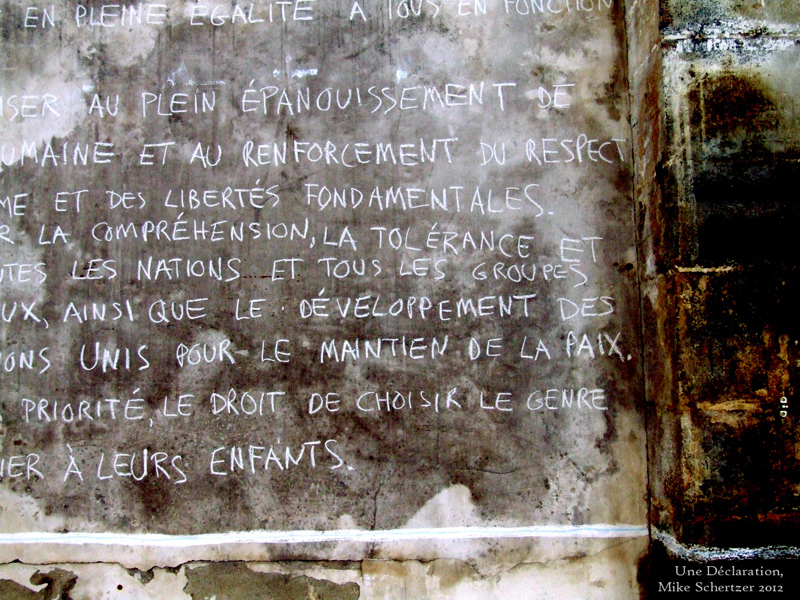 EN PLEINE ÉGALITÉ À TOUS EN FONCTION
ISER AU PLEIN ÉPANOUISSEMENT DE
UMAINE ET AU RENFORCEMENT DU RESPECT
ME ET DES LIBERTÉS FONDAMENTALES.
R LA COMPRÉHENSION, LA TOLÉRANCE ET
UTES LES NATIONS ET TOUS LES GROUPES
UX, AINSI QUE LE DÉVELOPPEMENT DES
IONS UNIS POUR LE MAINTIEN DE LA PAIX.
PRIORITÉ, LE DROIT DE CHOISIR LE GENRE
IER À LEURS ENFANTS.
Une Déclaration,
Mike Schertzer 2012